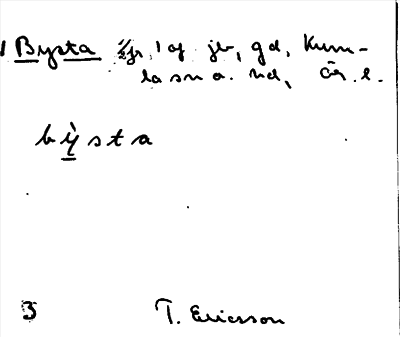 Bysta 1/2 fr, 1 af jb, gd, Kum-
la sn o. hd, Ör. l.
bỳsta
3 T. Ericsson